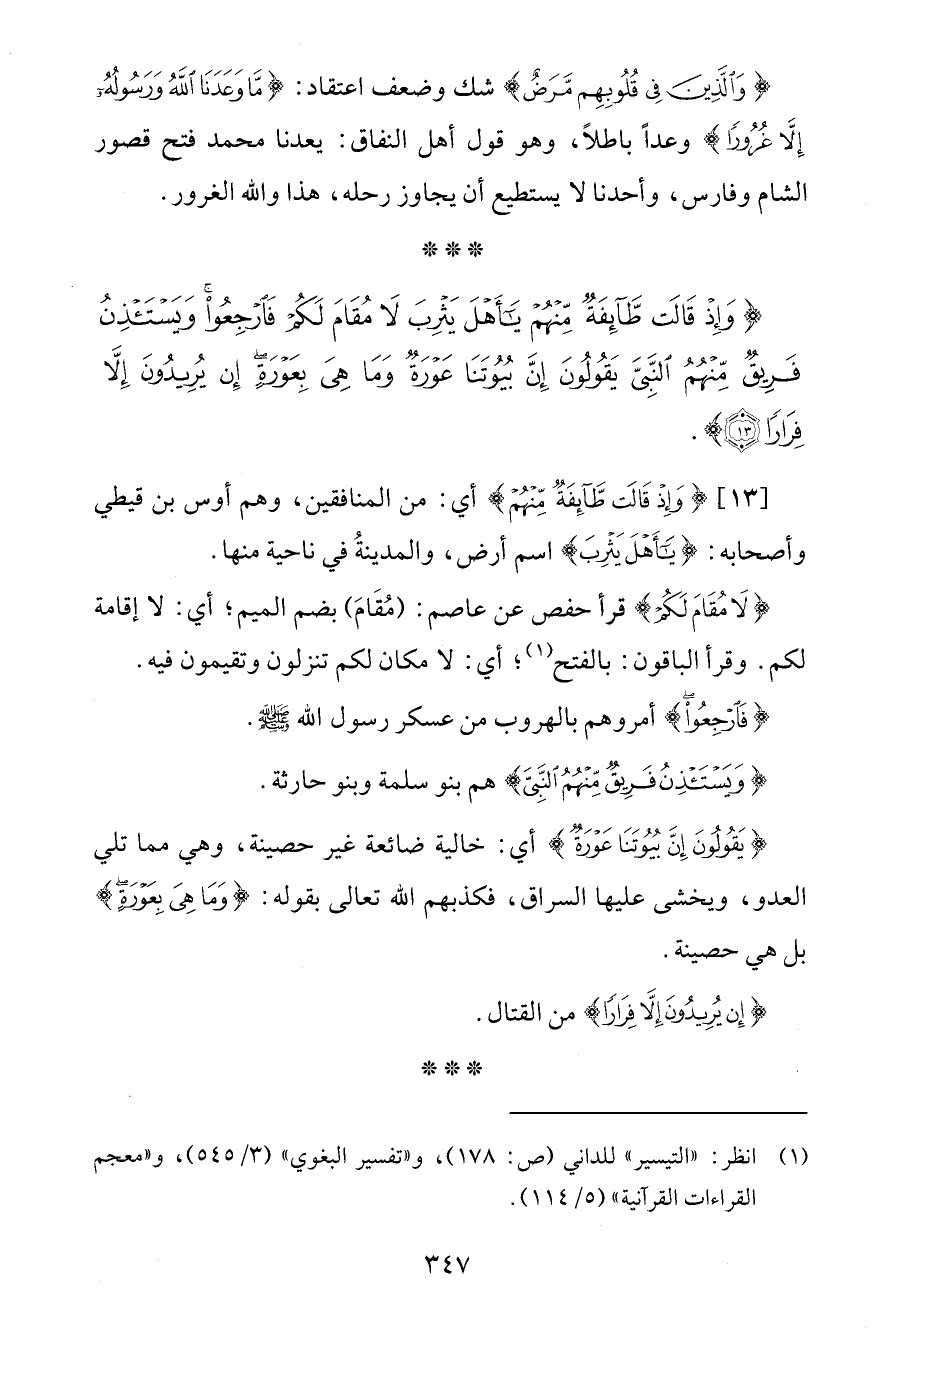 ﴿ وَٱلَّذِينَ فِى قُلُوبِهِم مَّرَضٌ ﴾ شك وضعف اعتقاد: ﴿ مَّا وَعَدَنَا ٱللَّهُ وَرَسُولُهُۥٓ
إِلَّا غُرُورًا ﴾ وعداً باطلاً، وهو قول أهل النفاق: يعدنا محمد فتح قصور
الشام وفارس، وأحدنا لا يستطيع أن يجاوز رحله، هذا والله الغرور.
* * *
﴿ وَإِذْ قَالَت طَّآئِفَةٌ مِّنْهُمْ يَـٰٓأَهْلَ يَثْرِبَ لَا مُقَامَ لَكُمْ فَٱرْجِعُوا۟ ۚ وَيَسْتَـْٔذِنُ
فَرِيقٌ مِّنْهُمُ ٱلنَّبِىَّ يَقُولُونَ إِنَّ بُيُوتَنَا عَوْرَةٌ وَمَا هِىَ بِعَوْرَةٍ ۖ إِن يُرِيدُونَ إِلَّا
فِرَارًا ١٣ ﴾.
[١٣] ﴿ وَإِذْ قَالَت طَّآئِفَةٌ مِّنْهُمْ ﴾ أي: من المنافقين، وهم أوس بن قيظي
وأصحابه: ﴿ يَـٰٓأَهْلَ يَثْرِبَ ﴾ اسم أرض، والمدينةُ في ناحية منها.
﴿ لَا مُقَامَ لَكُمْ ﴾ قرأ حفص عن عاصم: (مُقَامَ) بضم الميم؛ أي: لا إقامة
لكم. وقرأ الباقون: بالفتح(١)؛ أي: لا مكان لكم تنزلون وتقيمون فيه.
﴿ فَٱرْجِعُوا۟ ۖ ﴾ أمروهم بالهروب من عسكر رسول الله ﷺ.
﴿ وَيَسْتَـْٔذِنُ فَرِيقٌ مِّنْهُمُ ٱلنَّبِىَّ ﴾ هم بنو سلمة وبنو حارثة.
﴿ يَقُولُونَ إِنَّ بُيُوتَنَا عَوْرَةٌ ﴾ أي: خالية ضائعة غير حصينة، وهي مما تلي
العدو، ويخشى عليها السراق، فكذبهم الله تعالى بقوله: ﴿ وَمَا هِىَ بِعَوْرَةٍ ۖ ﴾
بل هي حصينة.
﴿ إِن يُرِيدُونَ إِلَّا فِرَارًا ﴾ من القتال.
* * *
(١) انظر: «التيسير» للداني (ص: ١٧٨)، و«تفسير البغوي» (٣/ ٥٤٥)، و«معجم
القراءات القرآنية» (٥/ ١١٤).
٣٤٧